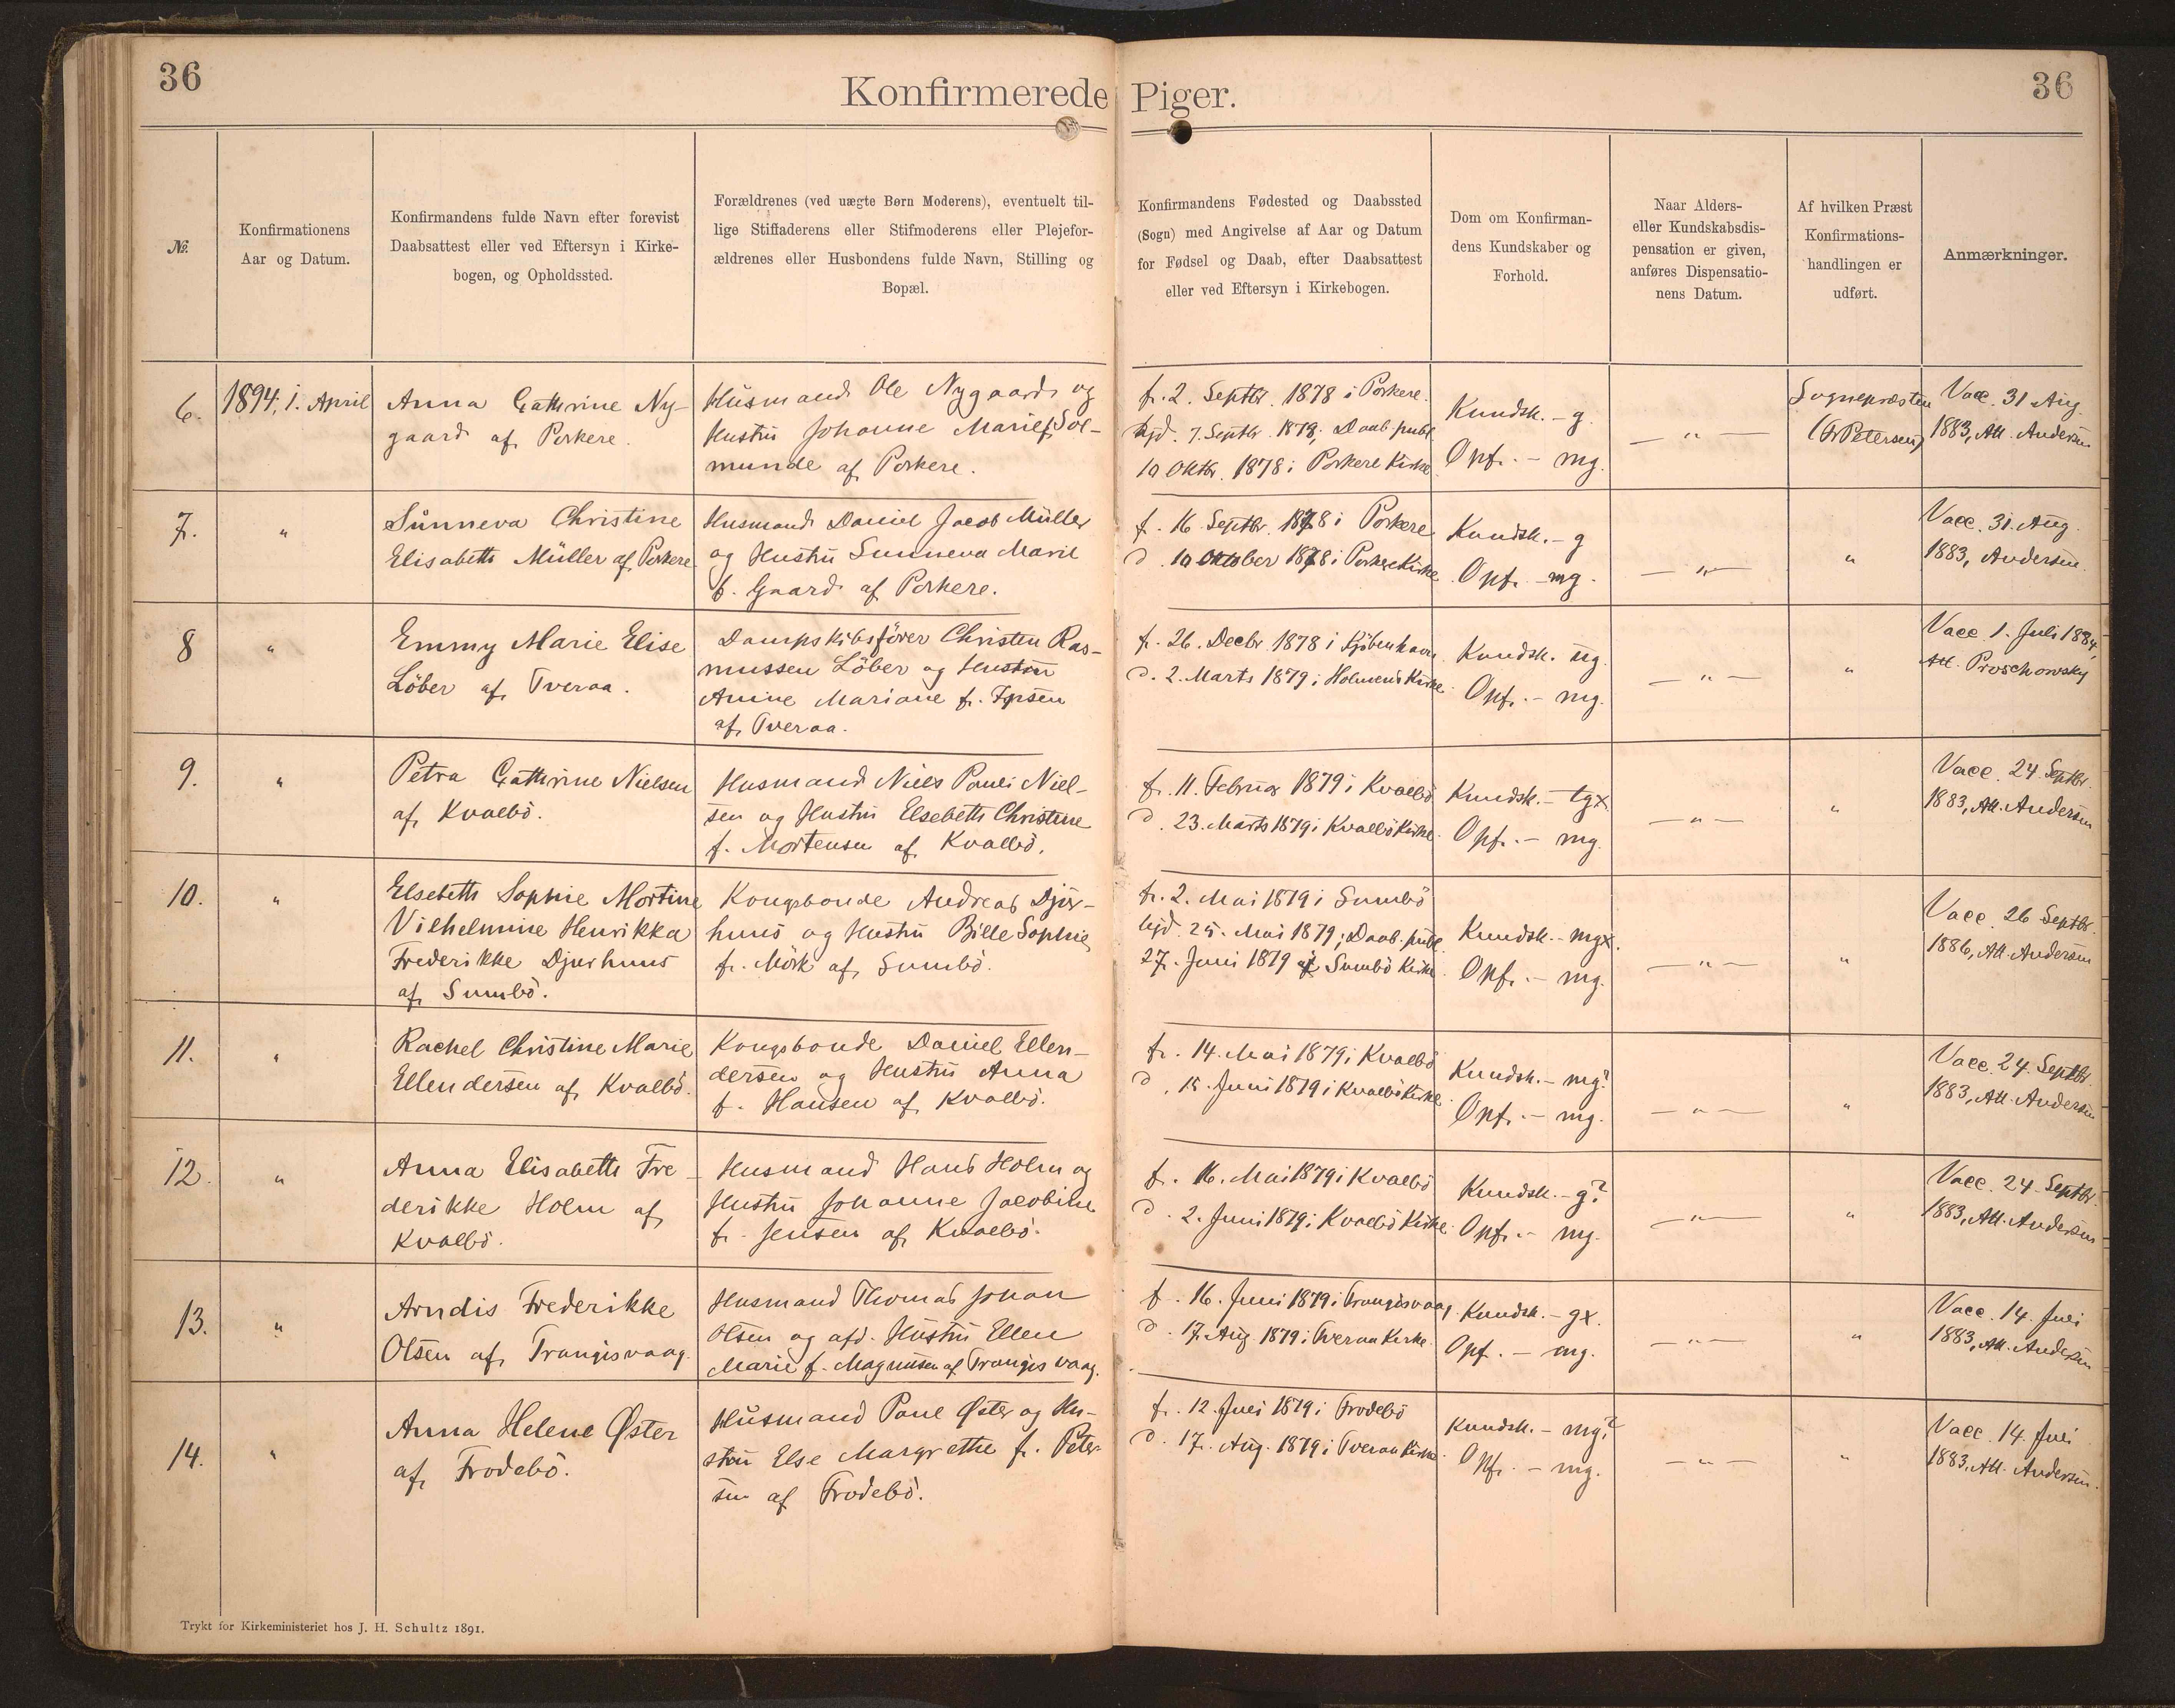 36
Konfirmerede Piger.
36
№.
Konfirmationens
Aar og Datum.
Konfirmandens fulde Navn efter forevist
Daabsattest eller ved Eftersyn i Kirke-
bogen, og Opholdssted.
Forældrenes (ved uægte Børn Moderens), eventuelt til-
lige Stiffaderens eller Stifmoderens eller Plejefor-
ældrenes eller Husbondens fulde Navn, Stilling og
Bopæl.
Konfirmandens Fødested og Daabssted
(Sogn) med Angivelse af Aar og Datum
for Fødsel og Daab, efter Daabsattest
eller ved Eftersyn i Kirkebogen.
Dom om Konfirman-
dens Kundskaber og
Forhold.
Naar Alders-
eller Kundskabsdis-
pensation er given,
anføres Dispensatio-
nens Datum.
Af hvilken Præst
Konfirmations-
handlingen er
udført.
Anmærkninger.
6.
1894, 1. April
Anna Cathrine Ny-
gaard af Porkere.
Husmand Ole Nygaard og
Hustru Johanne Marie f. Sol-
munde af Porkere.
f. 2. Septbr. 1878 i Porkere.
hjd. 7. Septbr. 1878; Daab. publ
10 Oktbr. 1878 i Porkere Kirke
Kundsk. - g.
Opf. - mg.
— " —
Sognepræsten
(Fr Petersen)
Vacc. 31 Aug.
1883, Att. Andersen
7.
"
Sünneva Christine
Elisabeth Müller af Porkere
Husmand Daniel Jacob Müller
og Hustru Sunneva Marie
f. Gaard af Porkere.
f. 16 Septbr. 1878 i Porkere
d. 10 Oktober 1878 i Porkere Kirke
Kundsk. - g
Opf. - mg.
— " —
"
Vacc. 31. Aug.
1883, Andersen.
8
"
Emmy Marie Elise
Löber af Tveraa.
Dampskibsfører Christen Ras-
mussen Löber og Hustru
Anine Mariane f. Ipsen
af Tveraa.
f. 26. Decbr. 1878 i Kjøbenhavn
d. 2. Marts 1879 i Holmens Kirke
Kundsk. ug.
Opf. - mg.
— " —
"
Vacc. 1. Juli 1884,
Att. Proschowsky
9.
"
Petra Cathrine Nielsen
af Kvalbö.
Husmand Niels Pauli Niel-
sen og Hustru Elsebeth Christine
f. Mortensen af Kvalbö.
f. 11. Februar 1879 i Kvalbö
d. 23. Marts 1879 i Kvalbö Kirke.
Kundsk. - tgx
Opf. - mg.
— " —
"
Vacc. 24. Septbr.
1883, Att. Andersen
10.
"
Elsebeth Sophie Mortine
Vilhelmine Henrikka
Frederikke Djurhuus
af Sumbö.
Kongsbonde Andreas Djur-
huus og Hustru Bille Sophie
f. Mörk af Sumbö.
f. 2. Mai 1879 i Sumbö
hjd. 25. Mai 1879; Daab. publ
27. Juni 1879 i Sumbö Kirke.
Kundsk. - mgx.
Opf. - mg.
— " —
"
Vacc. 26 Septbr.
1886, Att. Andersen
11.
"
Rachel Christine Marie
Ellendersen af Kvalbö.
Kongsbonde Daniel Ellen-
dersen og Hustru Anna
f. Hansen af Kvalbö.
f. 14. Mai 1879 i Kvalbö
d. 15. Juni 1879 i Kvalbö Kirke
Kundsk. - mg?
Opf. - mg.
— " —
"
Vacc. 24. Septbr.
1883, Att. Andersen
12.
"
Anna Elisabeth Fre-
derikke Holm af
Kvalbö.
Husmand Hans Holm og
Hustru Johanne Jacobine
f. Jensen af Kvalbö.
f. 16. Mai 1879 i Kvalbö
d. 2. Juni 1879 i Kvalbö Kirke.
Kundsk. - g?
Opf. - mg.
— " —
"
Vacc. 24. Septbr.
1883, Att. Andersen
13.
"
Arndis Frederikke
Olsen af Trangisvaag.
Husmand Thomas Johan
Olsen og afd. Hustru Ellen
Marie f. Magnusen af Trangisvaag.
f. 16. Juni 1879 i Trangisvaag.
d. 17. Aug. 1879 i Tveraa Kirke.
Kundsk. - gx.
Opf. - mg.
— " —
"
Vacc. 14. Juli
1883, Att. Andersen
14.
"
Anna Helene Øster
af Frodebö.
Husmand Poul Øster og Hu-
stru Else Margrethe f. Peter-
sen af Frodebö.
f. 12. Juli 1879 i Frodebö
d. 17. Aug. 1879 i Tveraa Kirke.
Kundsk. - mg?
Opf. - mg.
— " —
"
Vacc. 14. Juli
1883, Att. Andersen.
Trykt for Kirkeministeriet hos J. H. Schultz 1891.